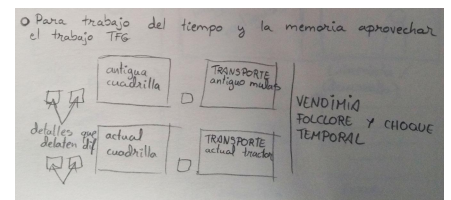 o Para trabajo del tiempo y la memoria aprovechar
el trabajo TFG
antigua
cuadrilla
TRANSPORTE
antiguo mulas
detalles que
delaten dif
actual
cuadrilla
TRANSPORTE
actual tractor
VENDIMIA
FOLCLORE Y CHOQUE
TEMPORAL